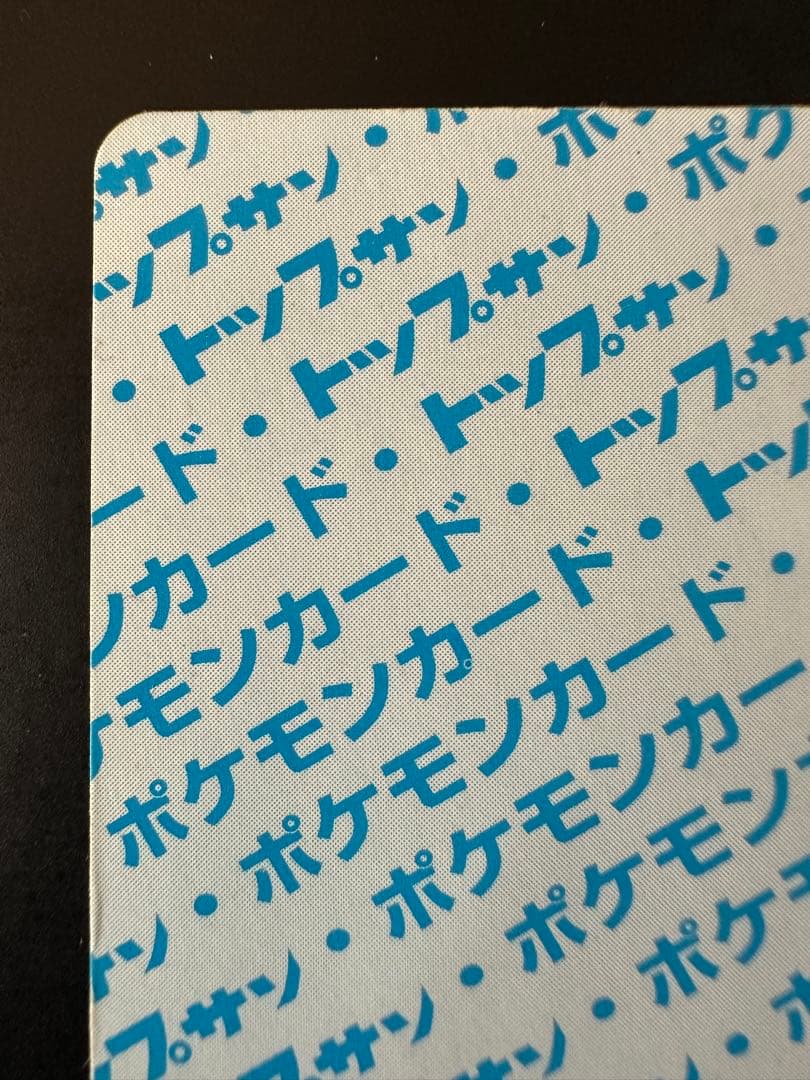 サン
ップサン・
・トップサン・ポ
ード・トップサン・ポケ
ンカード・トップサン・
ケモンカード・トップサン
ポケモンカード・トッ
サン・ポケモンカード・
プサン・ポケモンカー
プサン・ポケモン
サン・ポケモ
・ポ